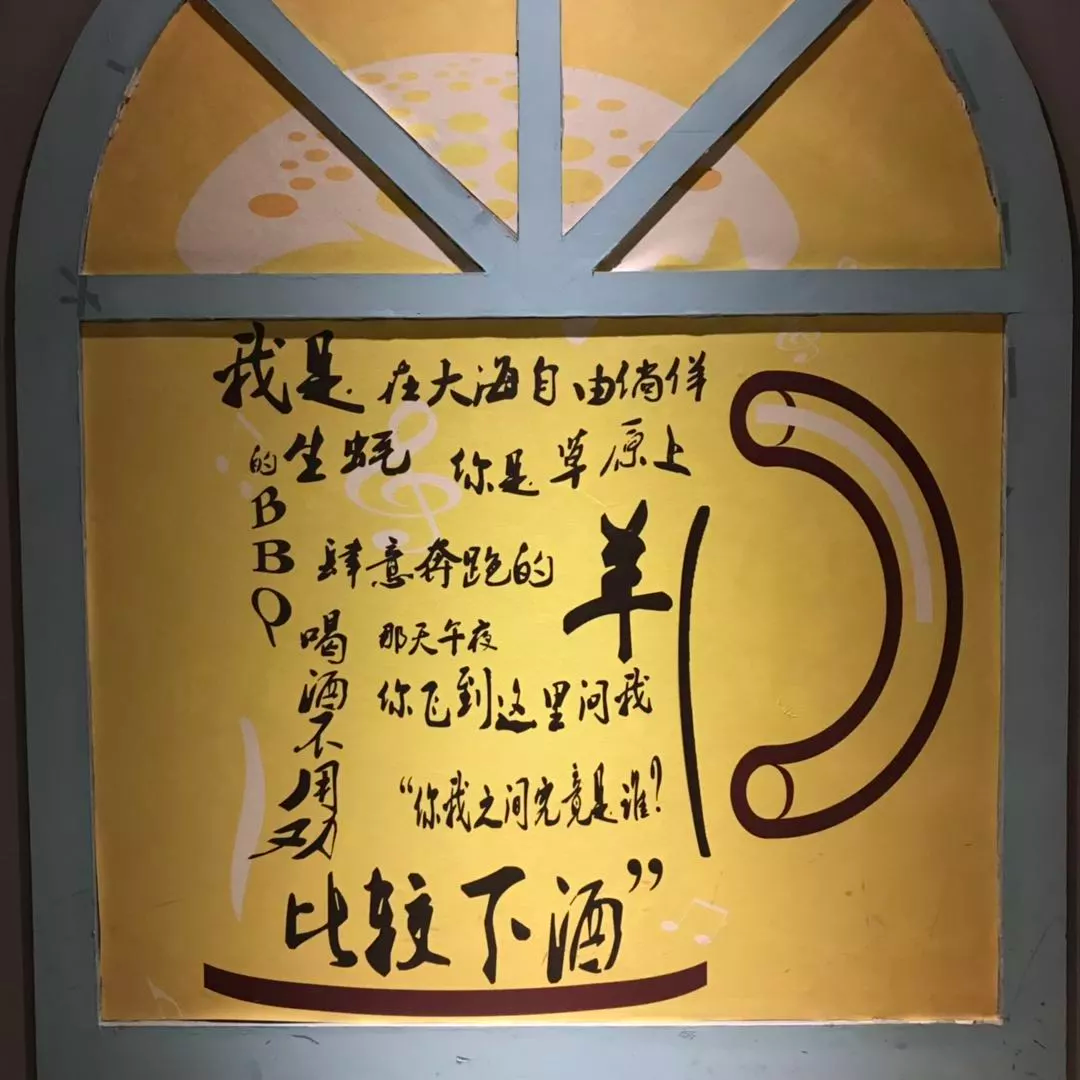 我是在大海自由倘佯
的生蚝 你是草原上
肆意奔跑的羊
那天午夜
你飞到这里问我
“你我之间究竟是谁?
比较下酒”
BBQ
喝酒不用劝